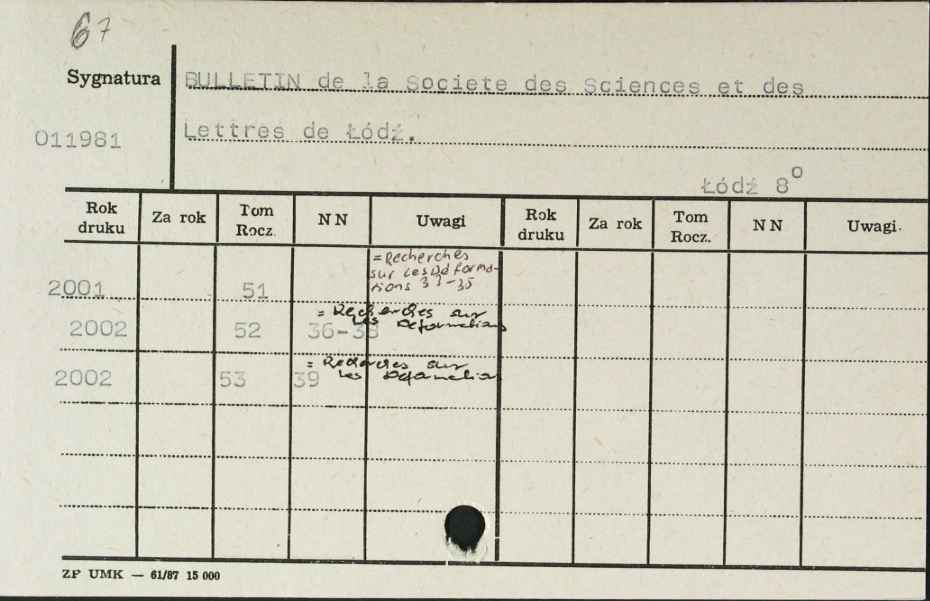 67
Sygnatura BULLETIN de la Societe des Sciences et des
011981 Lettres de Łódź.
Łódź 8°
Rok druku Za rok Tom Rocz. N N Uwagi Rok druku Za rok Tom Rocz. N N Uwagi.
= Recherches
sur Les Déforma-
tions 33-35
2001 51
= Recherches sur
Les Deformations
2002 52 36-38
= Recherches sur
Les Deformation
2002 53 39
ZP UMK — 61/87 15 000